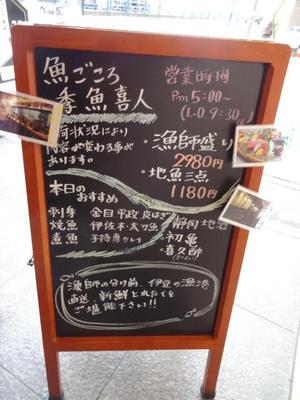 魚ごころ
季魚喜人
営業時間
Pm 5:00~
(L.O. 9:30
荷状況により
内容が変わる事が
あります。
・漁師盛り
2980円
・地魚三点
1180円
本日のおすすめ
刺身 金目 平政 皮はぎ
焼魚 伊佐木・太刀魚
煮魚 子持
静岡地酒
・初亀
・喜久酔
漁師の分け前、伊豆の漁港
直送、新鮮とれたてを
ご堪能下さい!!